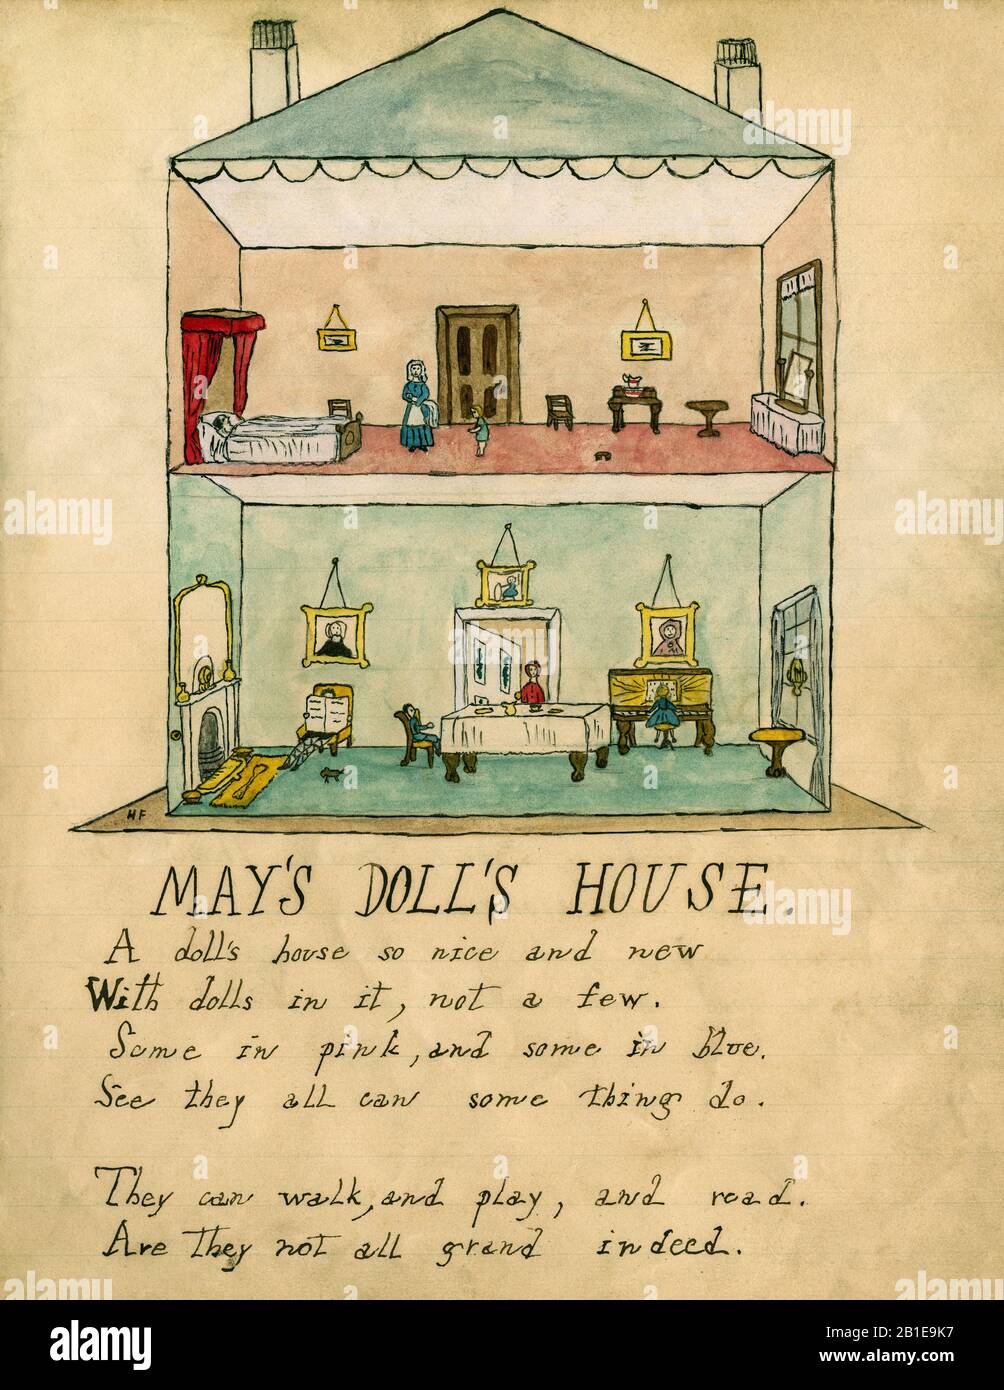 HF
MAY'S DOLL'S HOUSE.
A doll's house so nice and new
With dolls in it, not a few.
Some in pink, and some in blue.
See they all can some thing do.
They can walk, and play, and read.
Are they not all grand indeed.
alamy
alamy
Image ID: 2B1E9K7
www.alamy.com